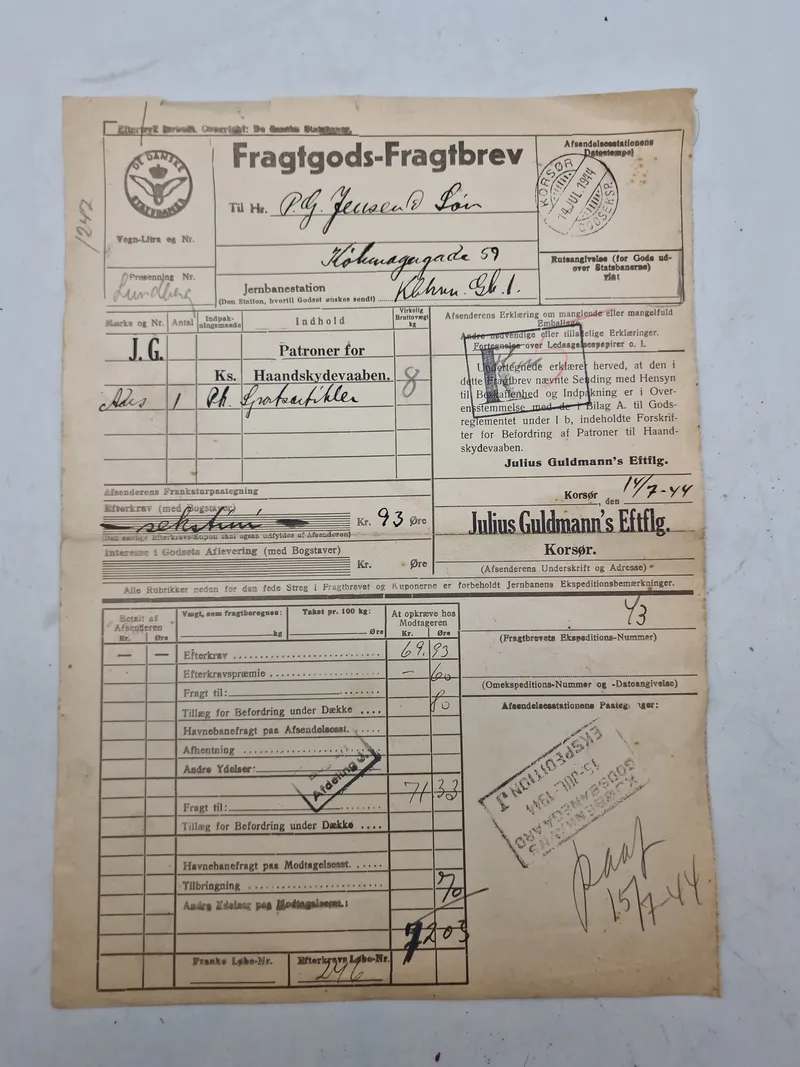 Eftertryk forbudt. Copyright: De danske Statsbaner.
DE DANSKE
STATSBANER
Fragtgods-Fragtbrev
Afsendelsesstationens
Datostempel
KORSØR
14 JUL 1944
GODSEKSP.
Til Hr. P. G. Jensen & Søn
Købmagergade 59
Vogn-Litra og Nr.
1247
Presenning Nr.
Lundberg
Jernbanestation Kbhvn. Gb. 1.
(Den Station, hvortil Godset ønskes sendt)
Ruteangivelse (for Gods ud-
over Statsbanerne)
via:
Mærke og Nr. Antal Indpak-
ningsmaade Indhold Virkelig
Bruttovægt
kg
J. G. Patroner for
Ks. Haandskydevaaben. 8
Adrs 1 Pk. Sportsartikler
Afsenderens Erklæring om manglende eller mangelfuld
Emballage
Andre nødvendige eller tilladelige Erklæringer.
Fortegnelse over Ledsagelsespapirer o. l.
Undertegnede erklærer herved, at den i
dette Fragtbrev nævnte Sending med Hensyn
til Beskaffenhed og Indpakning er i Over-
ensstemmelse med de i Bilag A. til Gods-
reglementet under I b, indeholdte Forskrif-
ter for Befordring af Patroner til Haand-
skydevaaben.
Julius Guldmann's Eftflg.
Afsenderens Frankaturpaategning
Efterkrav (med Bogstaver)
Kr. 93 Øre
Det særlige Efterkravs-Kupon skal ogsaa udfyldes af Afsenderen)
Interesse i Godsets Aflevering (med Bogstaver)
Kr. Øre
Korsør, den 14/7-44
Julius Guldmann's Eftflg.
Korsør.
(Afsenderens Underskrift og Adresse)
Alle Rubrikker neden for den fede Streg i Fragtbrevet og Kuponerne er forbeholdt Jernbanens Ekspeditionsbemærkninger.
Betalt af
Afsenderen
Kr. Øre
Vægt, som fragtberegnes: kg
Takst pr. 100 kg: Øre
At opkræve hos
Modtageren
Kr. Øre
43
(Fragtbrevets Ekspeditions-Nummer)
— — Efterkrav 69.93
Efterkravspræmie — 60
Fragt til: 80
Tillæg for Befordring under Dække
Havnebanefragt paa Afsendelsesst.
Afhentning
Andre Ydelser:
Afdeling J.
71 33
Fragt til:
Tillæg for Befordring under Dække
Havnebanefragt paa Modtagelsesst.
Tilbringning 70
Andre Ydelser paa Modtagelsesst.:
72 03
Franko Løbe-Nr.
Efterkravs Løbe-Nr.
246
(Omekspeditions-Nummer og -Datoangivelse)
Afsendelsesstationens Paategninger:
KØBENHAVNS
GODSBANEGAARD
15. JUL. 1944
EKSPEDITION J
15/7-44